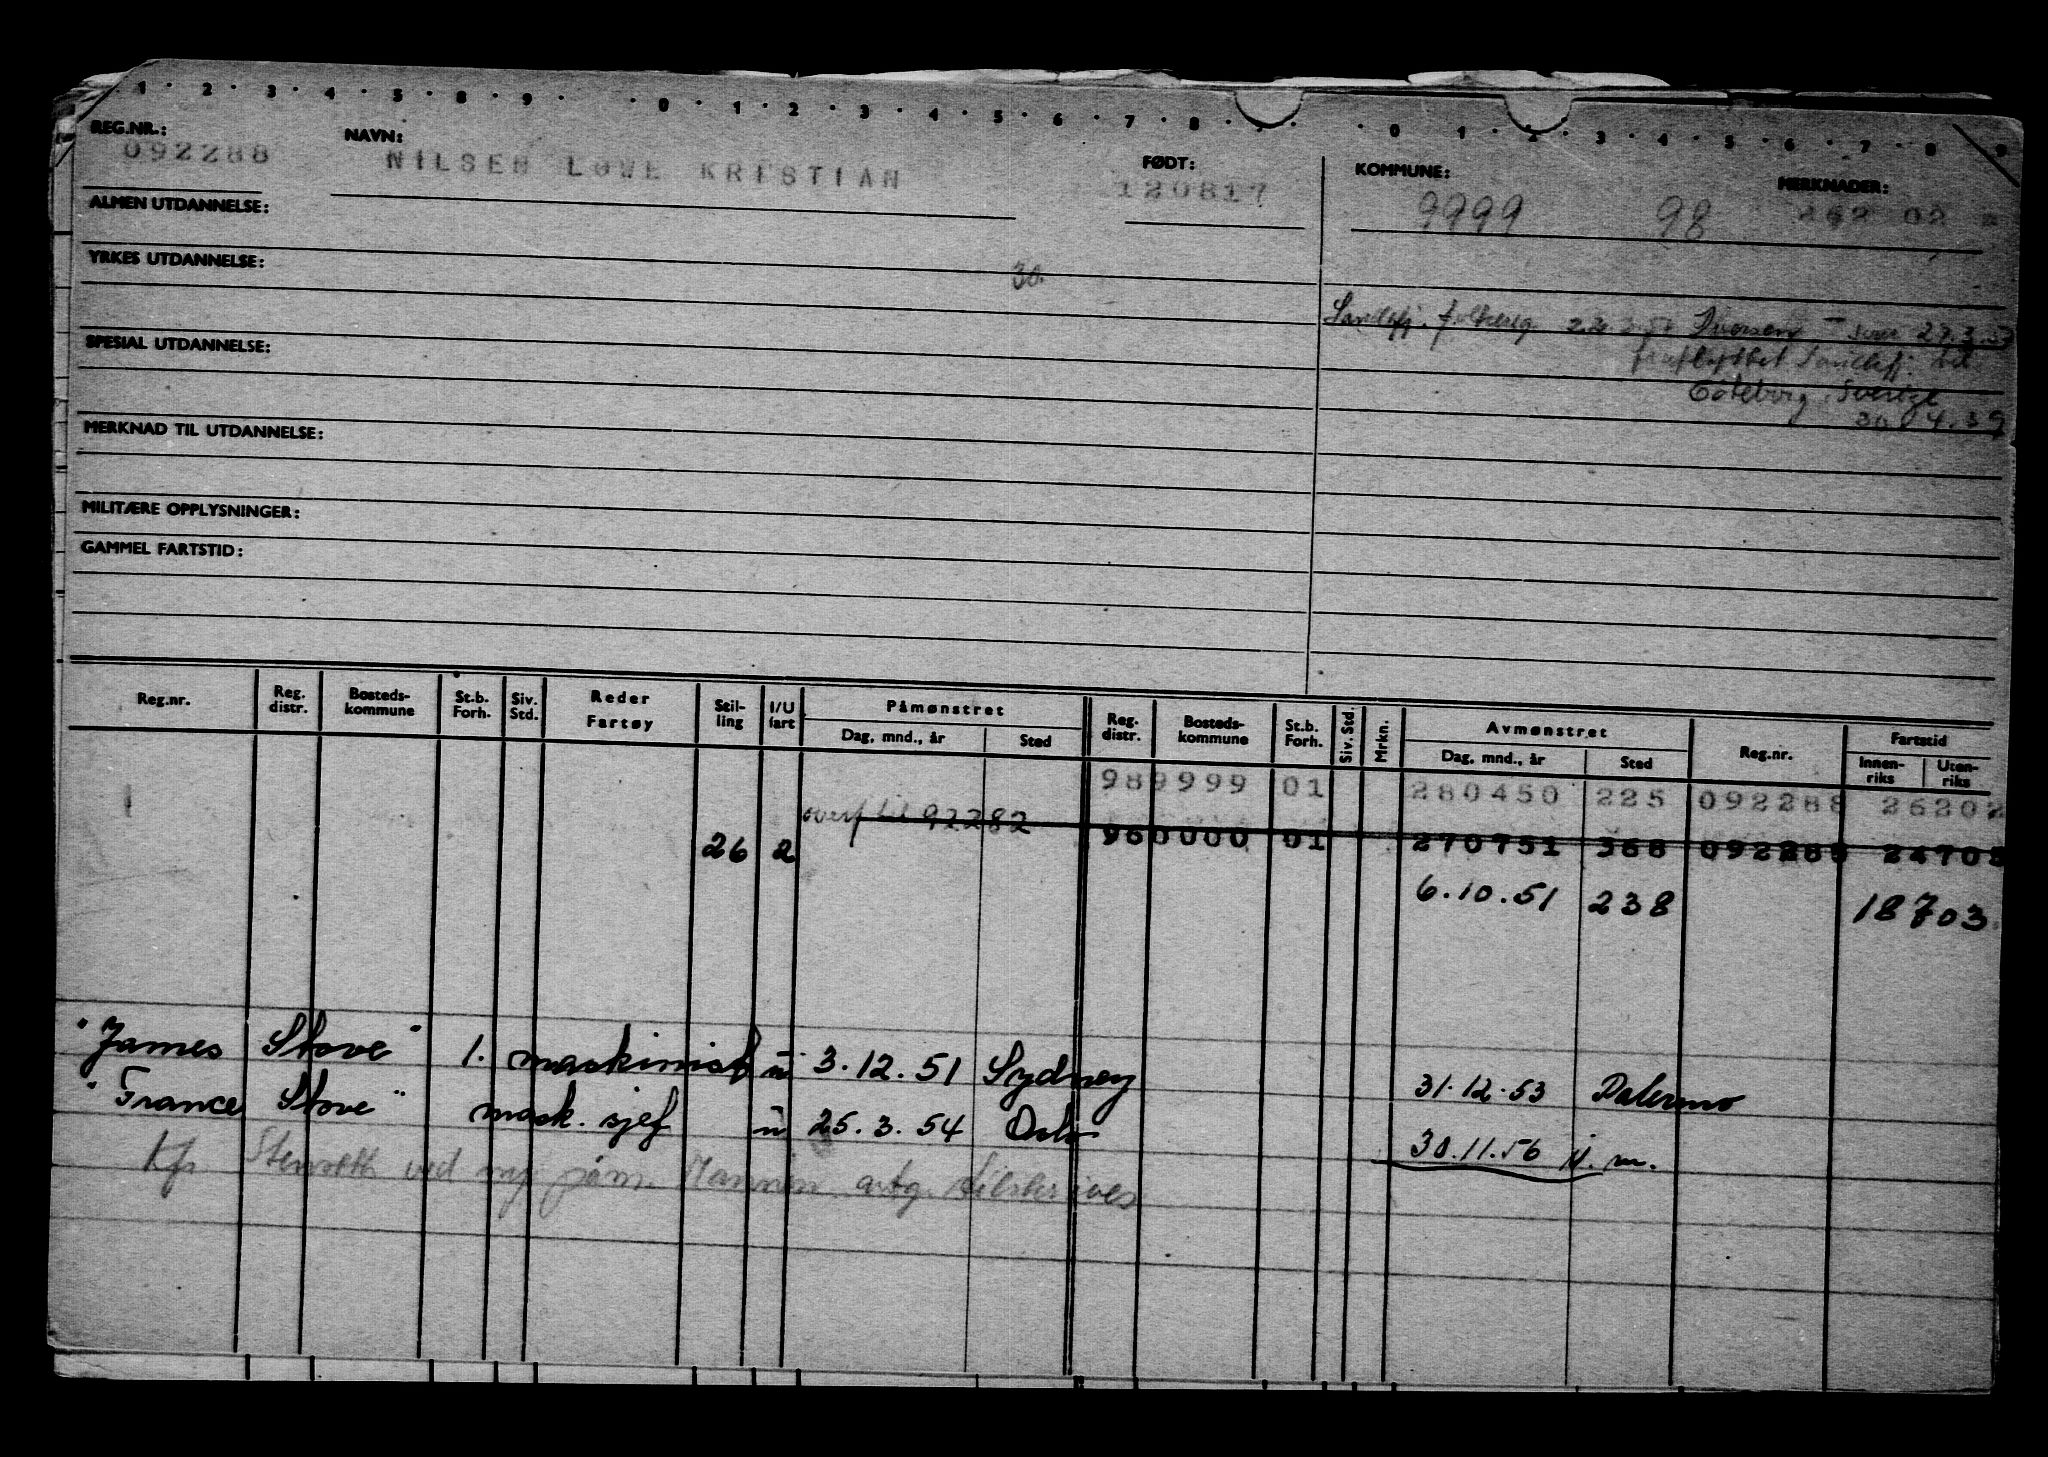 1 · 2 · 3 · 4 · 5 · 8 · 9 · · 0 · 1 · 2 · 3 · 4 · 5 · 6 · 7 · 8 · · · 0 · 1 · 2 · 3 · 4 · 5 · 6 · 7 · 8 · 9
REG.NR.: NAVN: FØDT: KOMMUNE: MERKNADER:
092288 NILSEN LOWE KRISTIAN 120817 9999 98 262 02
ALMEN UTDANNELSE:
YRKES UTDANNELSE:
30.
Sandefj. folkereg. 27.3.53
SPESIAL UTDANNELSE:
Sandefj. til
Göteborg, Sverige
30.4.39
MERKNAD TIL UTDANNELSE:
MILITÆRE OPPLYSNINGER:
GAMMEL FARTSTID:
Reg.nr. Reg. distr. Bosteds-kommune St.b. Forh. Siv. Std. Reder Fartøy Stil-ling I/U fart Påmønstret Reg. distr. Bosteds-kommune St.b. Forh. Siv. Std. Mrkn. Avmønstret Reg.nr. Fartstid
Dag, mnd., år Sted Dag, mnd., år Sted Innen-riks Uten-riks
989999 01 280450 225 092288 26202
overf til 92282
26 2 960000 01 270751 368 092288 24703
6.10.51 238 18703
"James Stove" 1. maskinist u 3.12.51 Sydney 31.12.53 Palermo
"France Stove" mask. sjef u 25.3.54 Oslo 30.11.56 N. m.
Kfr. ved ny